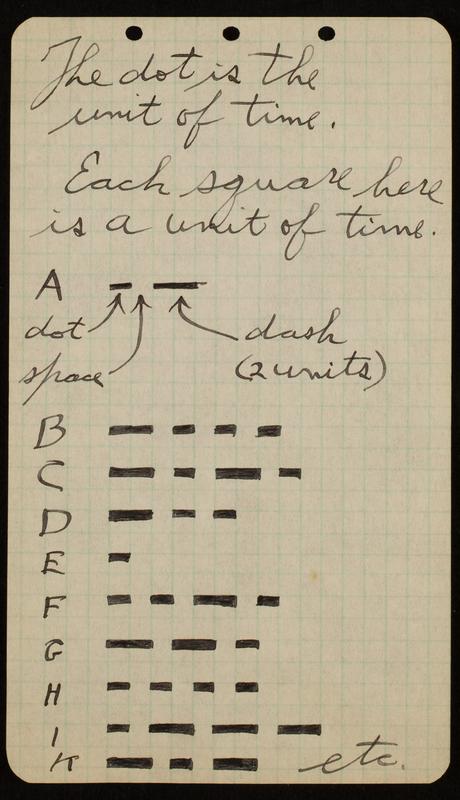 The dot is the
unit of time.
Each square here
is a unit of time.
A
dot
dash
space
(2 units)
B
C
D
E
F
G
H
I
K
etc.